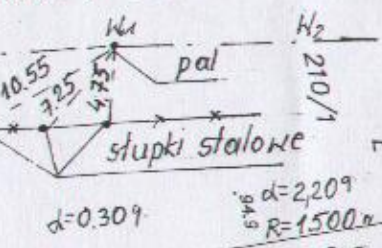 W1
W2
10.55
7.25
4.75
pal
210/1
słupki stalowe
α=0.309
94.9
α=2,209
R=1500